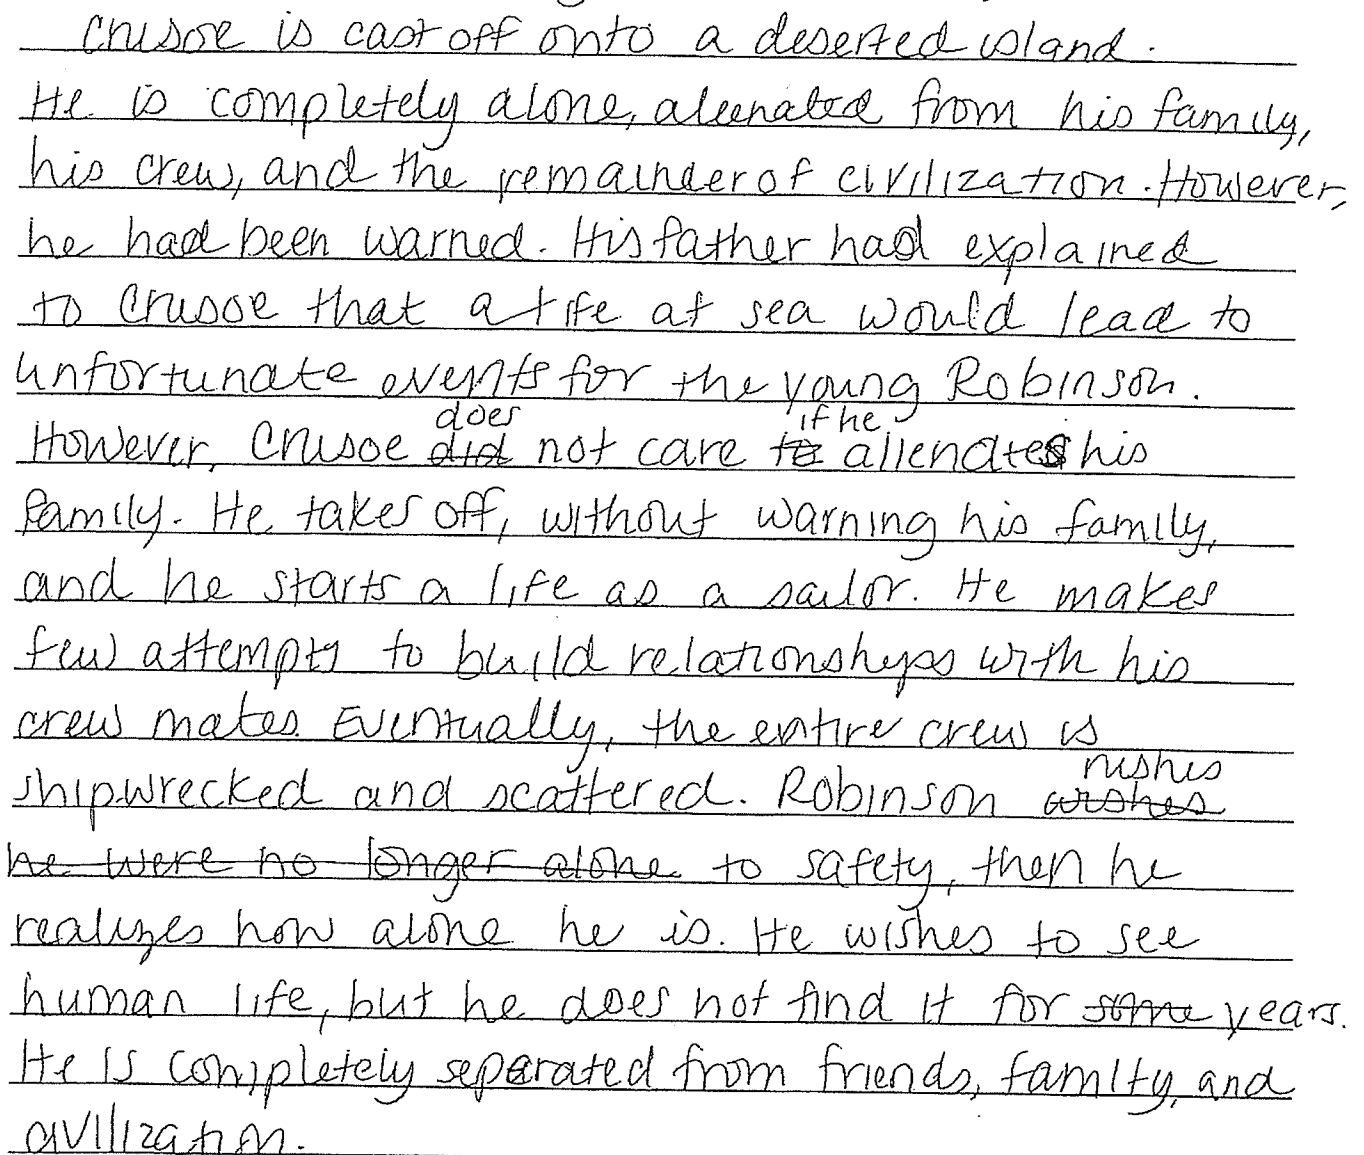 Crusoe is cast off onto a deserted island.
He is completely alone, alienated from his family,
his crew, and the remainder of civilization. However,
he had been warned. His father had explained
to Crusoe that a life at sea would lead to
unfortunate events for the young Robinson.
does if he
However, Crusoe did not care to alienates his
family. He takes off, without warning his family,
and he starts a life as a sailor. He makes
few attempts to build relationships with his
crew mates. Eventually, the entire crew is
rushes
shipwrecked and scattered. Robinson wishes
he were no longer alone to safety, then he
realizes how alone he is. He wishes to see
human life, but he does not find it for some years.
He is completely separated from friends, family, and
civilization.